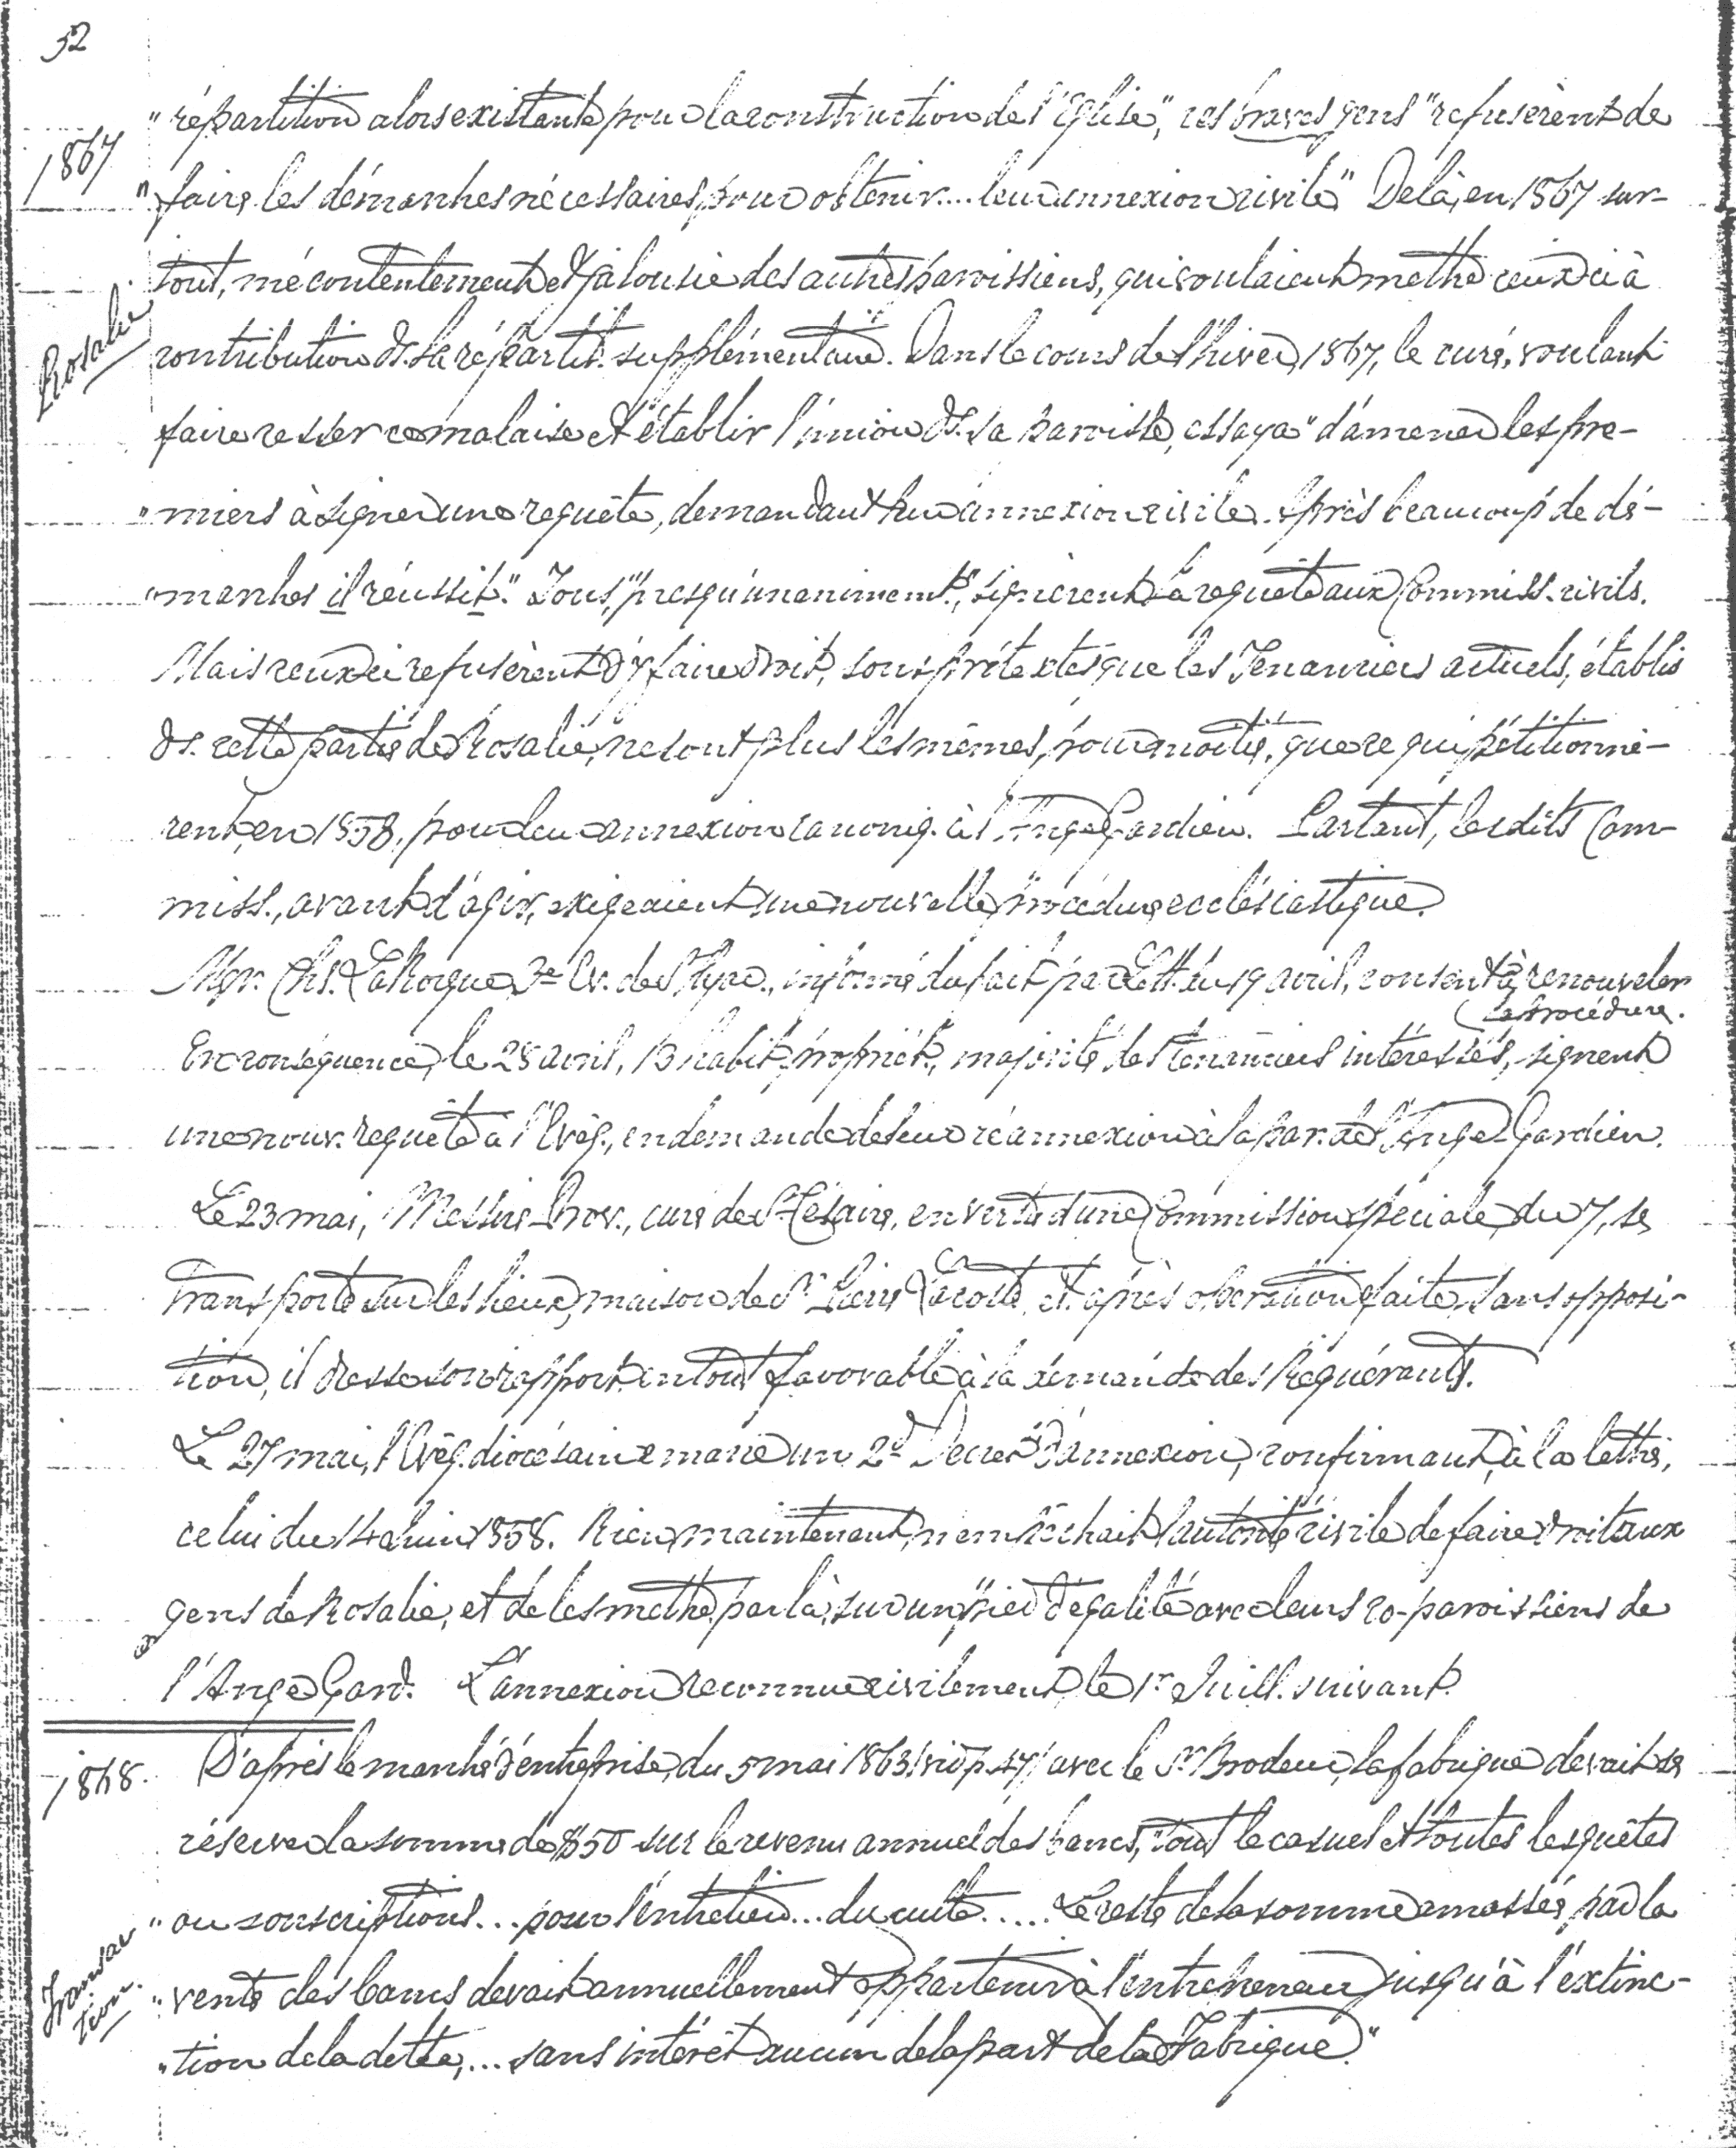 52
" répartition alors existante pour la construction de l'Église", ces braves gens "refusèrent de
1867
" faire les démarches nécessaires pour obtenir.... leur annexion civile" De là, en 1867 sur-
tout, mécontentement et jalousie des autres paroissiens, qui voulaient mettre ceux-ci à
Rosalie
contribution ds. la répartit. supplémentaire. Dans le cours de l'hiver 1867, le curé, voulant
faire cesser ce malaise et établir l'union ds. sa paroisse, essaya "d'amener les pre-
" miers à signer une requête, demandant leur annexion civile. Après beaucoup de dé-
" marches il réussit." Tous, "presqu'unanimemt.", signèrent la requête aux Commiss. civils.
Mais ceux-ci refusèrent d'y faire droit, sous prétexte que les Tenanciers actuels, établis
ds. cette partie de Rosalie, ne sont plus les mêmes, pour moitié, que ce qui pétitionnè-
rent, en 1858, pour leur annexion canoniq. à l'Ange-Gardien. Partant, lesdits Com-
miss., avant d'agir, exigeaient une nouvelle procédure ecclésiastique.
Mgr. Chs. LaRocque, 3e Ev. de St Hyac., informé du fait par Lett. du 19 avril, consent à renouveler
la procédure.
En conséquence, le 28 avril, 13 habit. propriét., majorité des tenanciers intéressés, signent
une nouv. requête à l'Evêq., en demande de leur réannexion à la par. de l'Ange-Gardien.
Le 23 mai, Messire Prov., curé de St Césaire, en vertu d'une Commission spéciale, du 7, se
transporte sur les lieux, maison de Sr Pierre Lacoste, et après opération faite, sans opposi-
tion, il dresse son rapport en tout favorable à la demande des Requérants.
Le 27 mai, l'Evêq. diocésain émane un 2d Décret d'annexion, confirmant, à la lettre,
celui du 14 Juin 1858. Rien, maintenant, n'empêchait l'autorité civile de faire droit aux
gens de Rosalie, et de les mettre, par là, sur un pied d'égalité avec leurs co-paroissiens de
l'Ange Gard. L'annexion reconnue civilement, le 1r Juill. suivant.
1868. D'après le marché d'entreprise, du 5 mai 1863 (vid. p. 47) avec le Sr Brodeur, la fabrique devait se
réserver la somme de $50 sur le revenu annuel des bancs, "tout le casuel et toutes les quêtes
" ou souscriptions... pour l'entretien... du culte..... Le reste de la somme amassée, par la
Transac-
tion.
" vente des bancs devait annuellement appartenir à l'entrepreneur jusqu'à l'extinc-
" tion de la dette,... sans intérêt aucun de la part de la Fabrique."